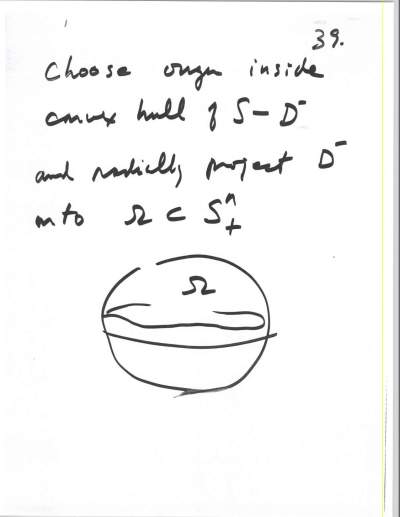 39.
Choose origin inside
convex hull of S - D⁻
and radially project D⁻
onto Ω ⊂ Sⁿ₊
Ω